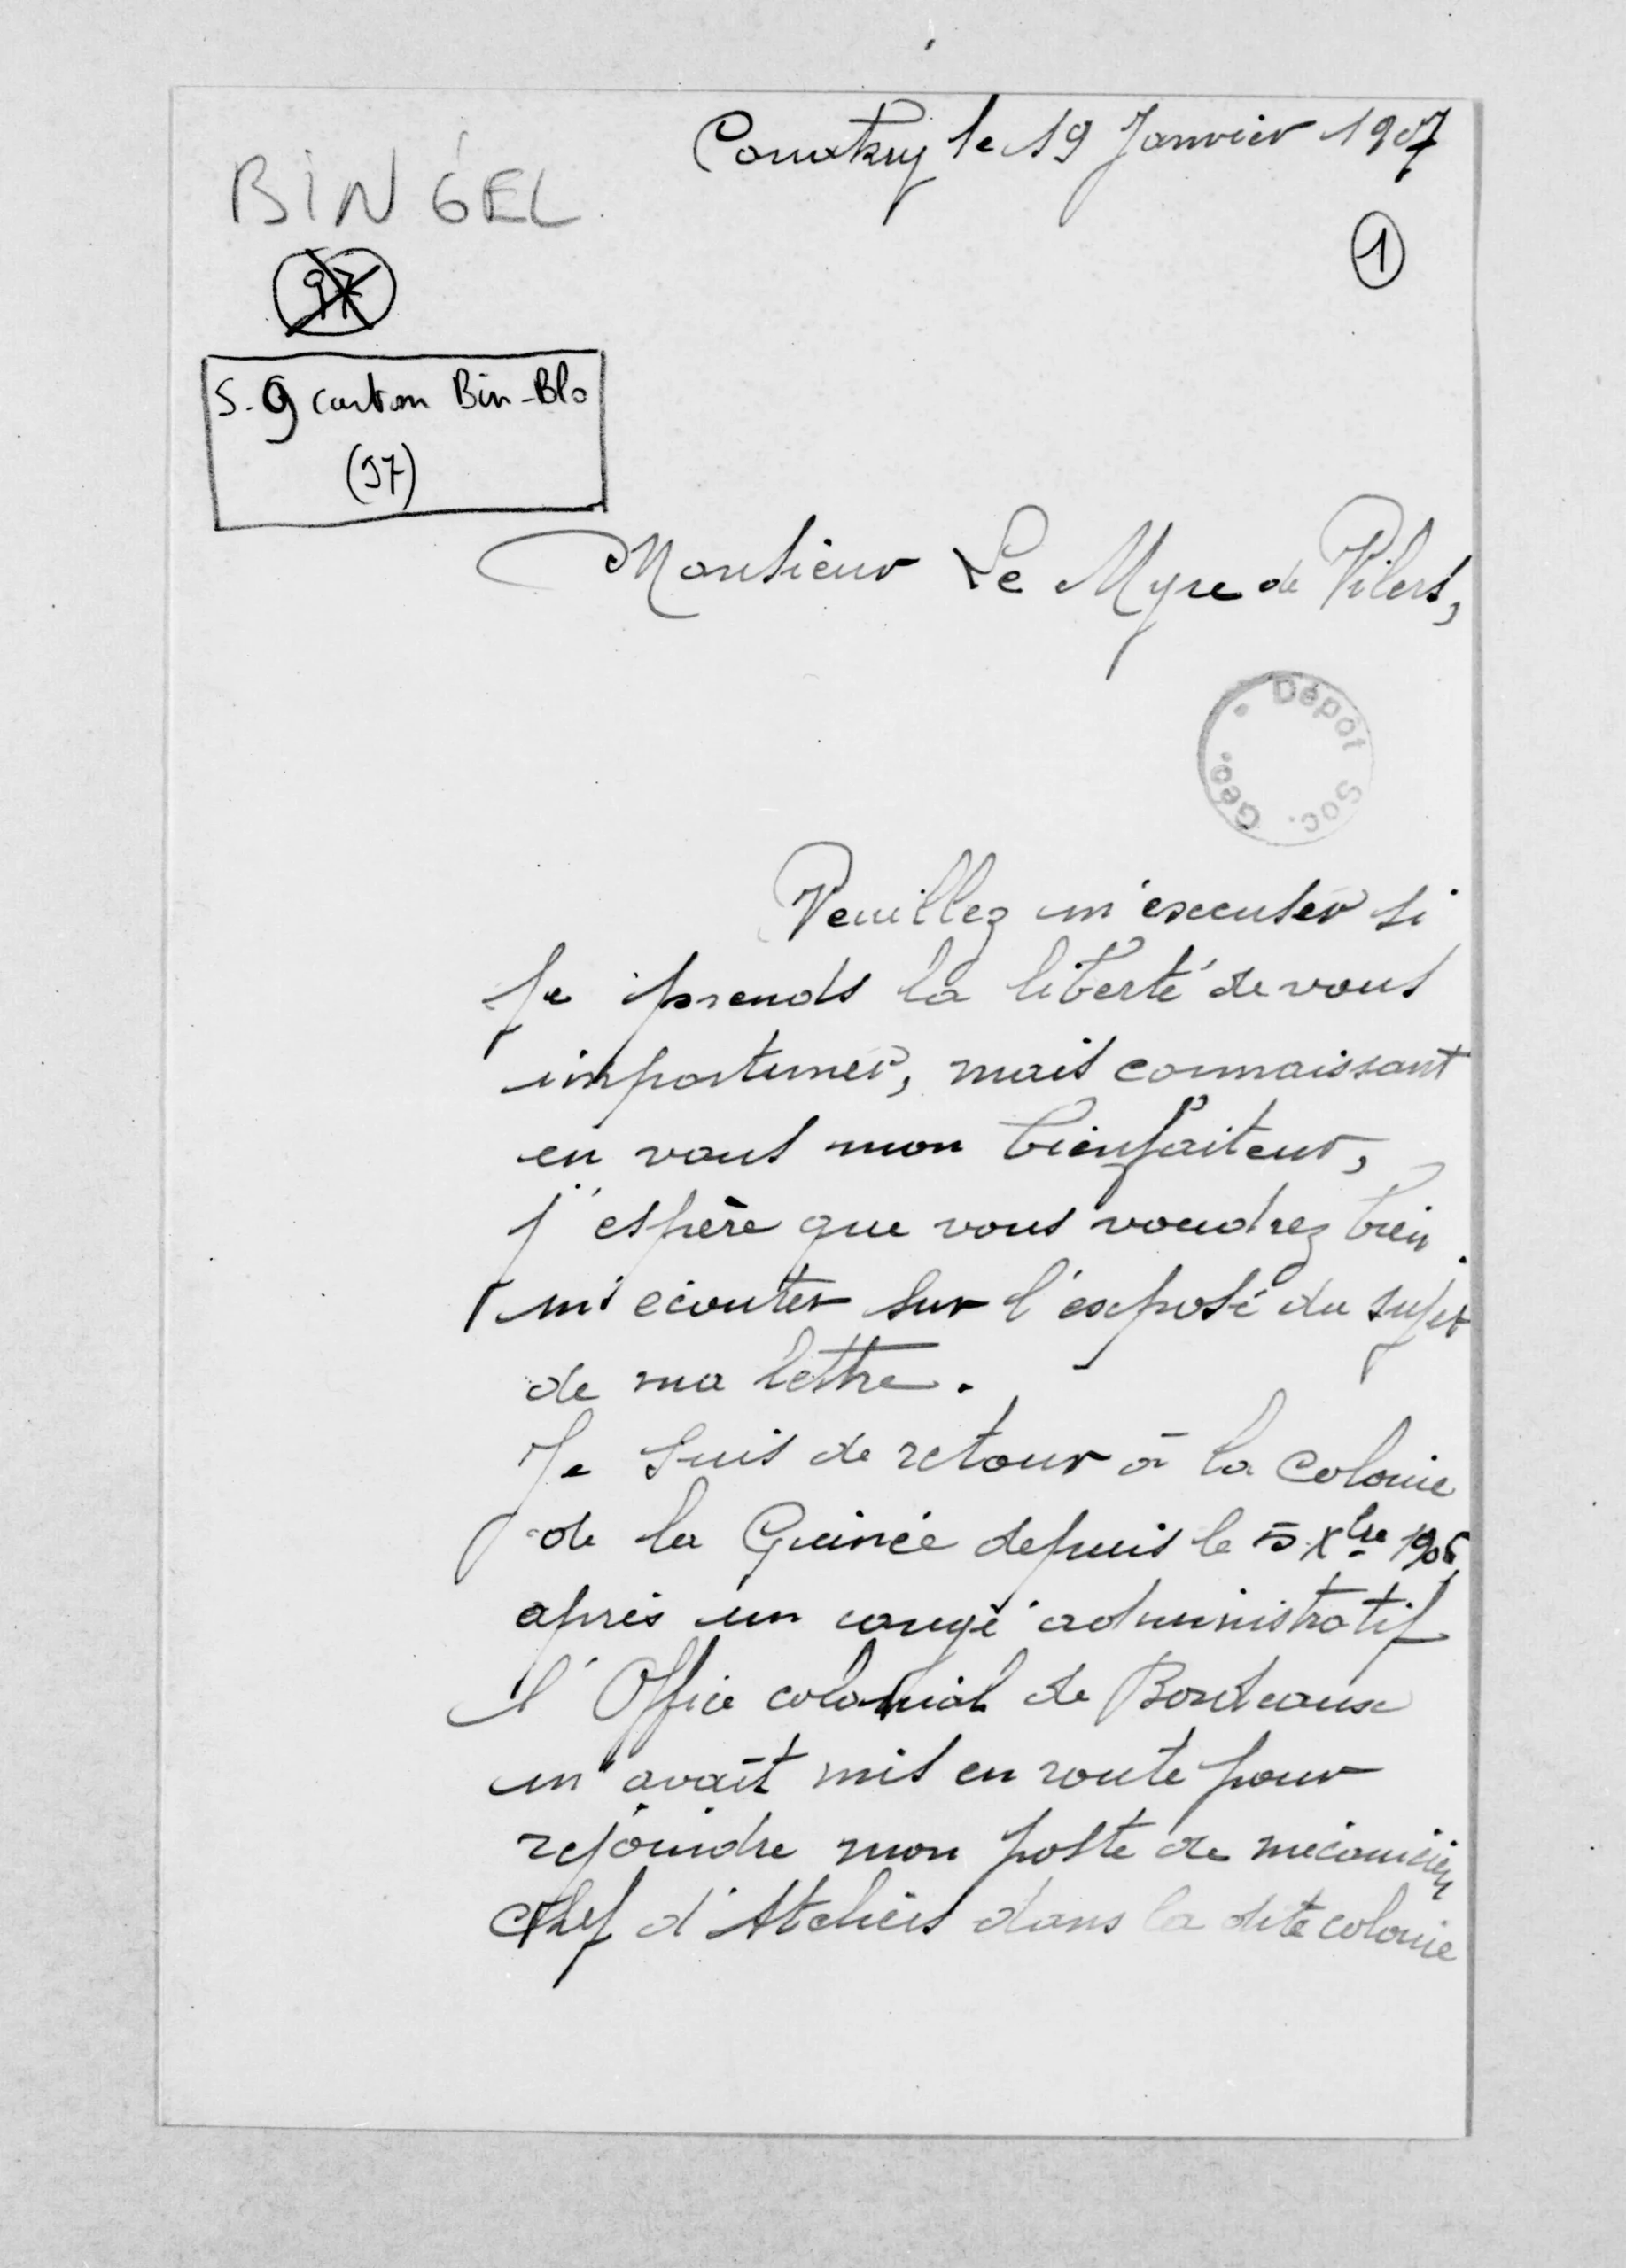 Conakry le 19 Janvier 1907
BINGEL
1
97
S. G carton Bin-Blo
(97)
Monsieur Le Myre de Vilers,
Dépôt Soc. Géo.
Veuillez m'excuser si
je prends la liberté de vous
importuner, mais connaissant
en vous mon bienfaiteur,
j'espère que vous voudrez bien
m'écouter sur l'exposé du sujet
de ma lettre.
Je suis de retour à la Colonie
de la Guinée depuis le 5 Xbre 1906
après un congé administratif
l'Office colonial de Bordeaux
m'avait mis en route pour
rejoindre mon poste de mécanicien
chef d'Ateliers dans la dite colonie